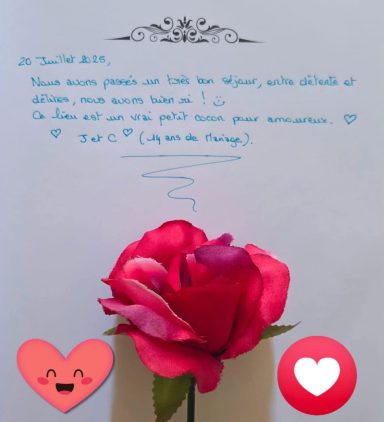 20 Juillet 2025,
Nous avons passés un très bon séjour, entre détente et
délires, nous avons bien ri ! 😊
Ce lieu est un vrai petit cocon pour amoureux. ♡
♡ J et C ♡ (14 ans de Mariage).